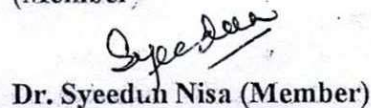 (Member
Syeedun
Dr. Syeedun Nisa (Member)